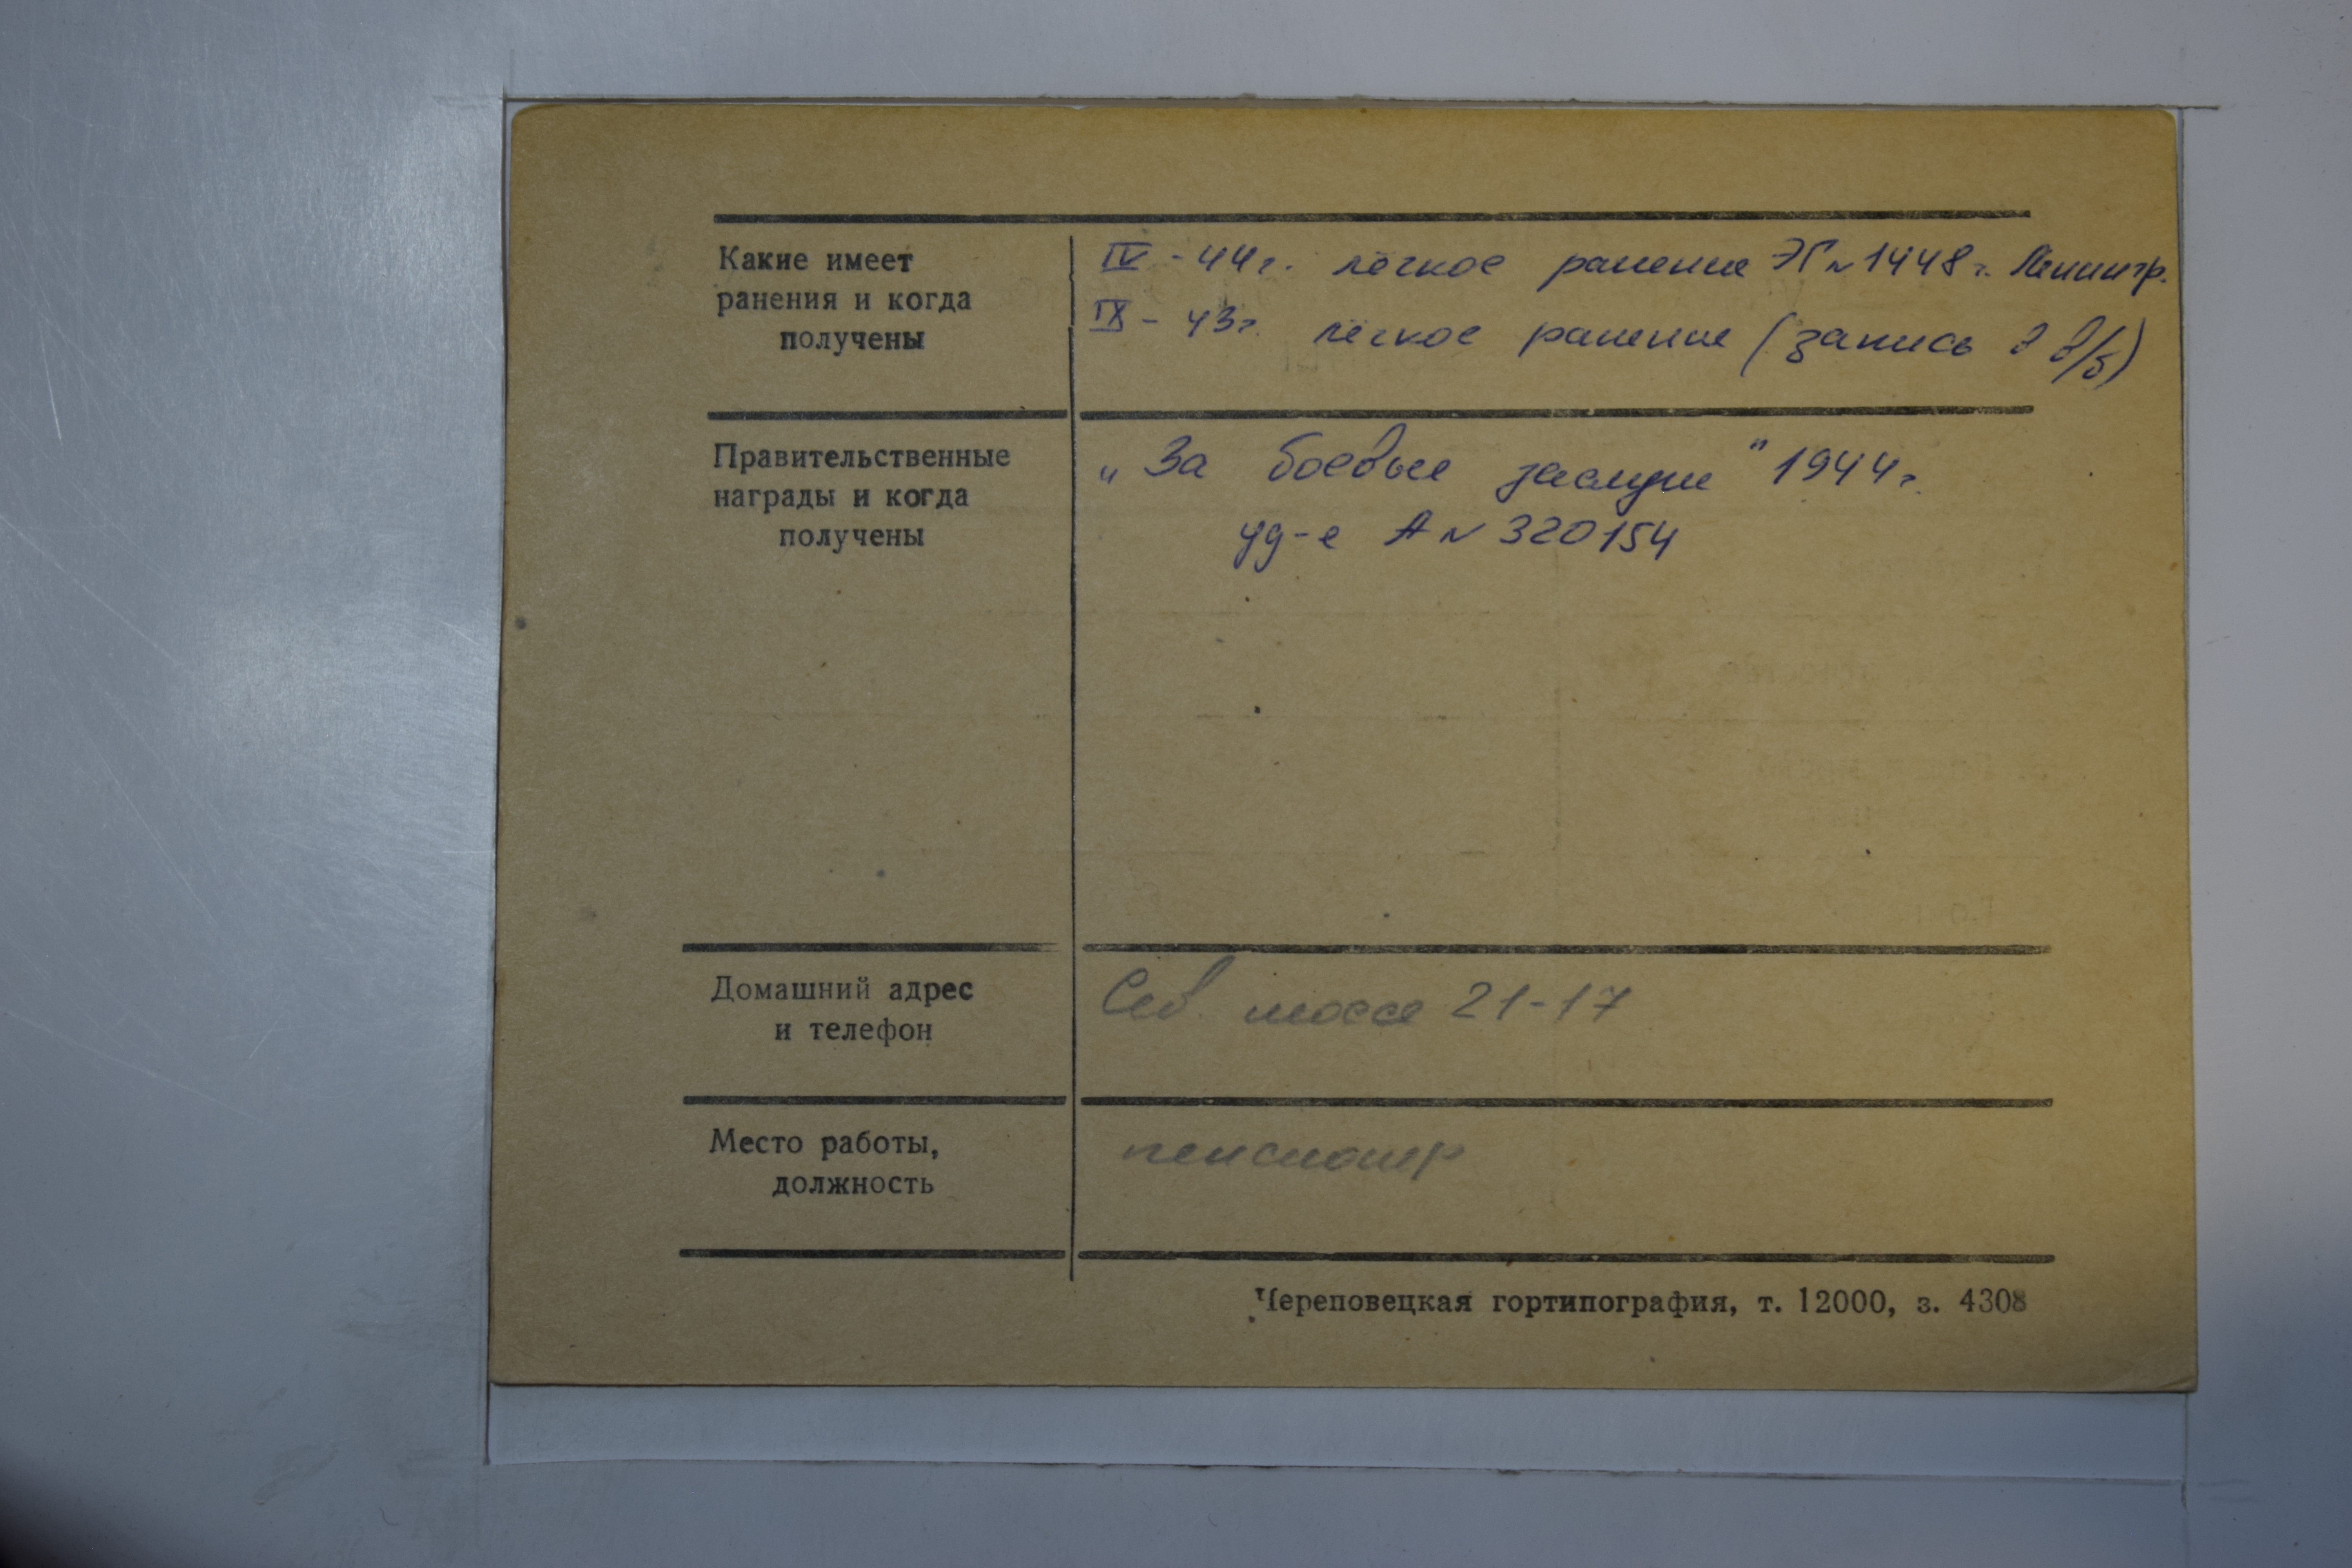 Какие имеет
ранения и когда
получены
IV - 44г. лёгкое ранение ЭГ №1448 г. Ленингр.
IX - 43г. лёгкое ранение (запись в в/б)
Правительственные
награды и когда
получены
„За боевые заслуги" 1944г.
уд-е А № 320154
Домашний адрес
и телефон
Сев. шоссе 21-17
Место работы,
должность
пенсионер
Череповецкая гортипография, т. 12000, з. 4308